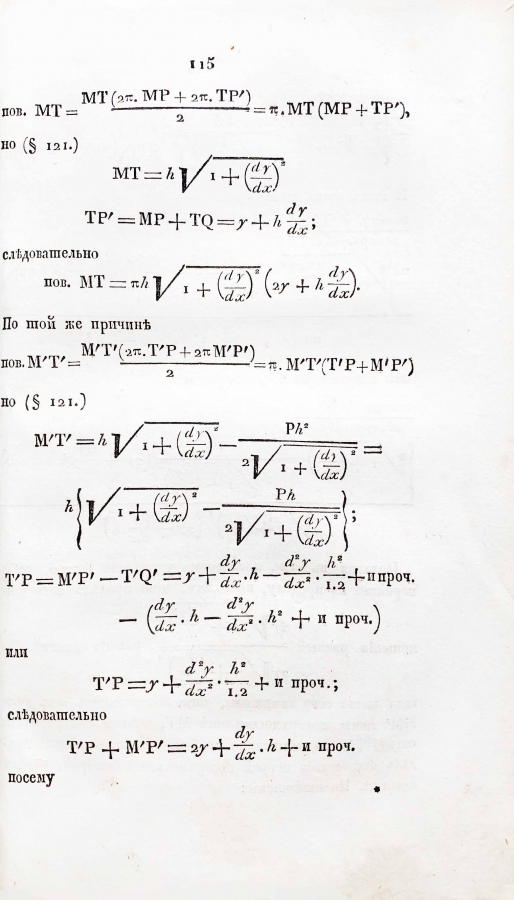 115
пов. MT = MT(2π. MP + 2π. TP′)/2 = π. MT (MP + TP′),
но (§ 121.)
MT = h√(1 + (dy/dx)²)
TP′ = MP + TQ = y + h dy/dx;
слѣдовательно
пов. MT = πh√(1 + (dy/dx)²) (2y + h dy/dx).
По той же причинѣ
пов. M′T′ = M′T′(2π. T′P + 2π M′P′)/2 = π. M′T′(T′P + M′P′)
но (§ 121.)
M′T′ = h√(1 + (dy/dx)²) − Ph²/(2√(1 + (dy/dx)²)) =
h{√(1 + (dy/dx)²) − Ph/(2√(1 + (dy/dx)²))};
T′P = M′P′ − T′Q′ = y + dy/dx . h − d²y/dx² . h²/1.2 + и проч.
− (dy/dx . h − d²y/dx² . h² + и проч.)
или
T′P = y + d²y/dx² . h²/1.2 + и проч.;
слѣдовательно
T′P + M′P′ = 2y + dy/dx . h + и проч.
посему
*